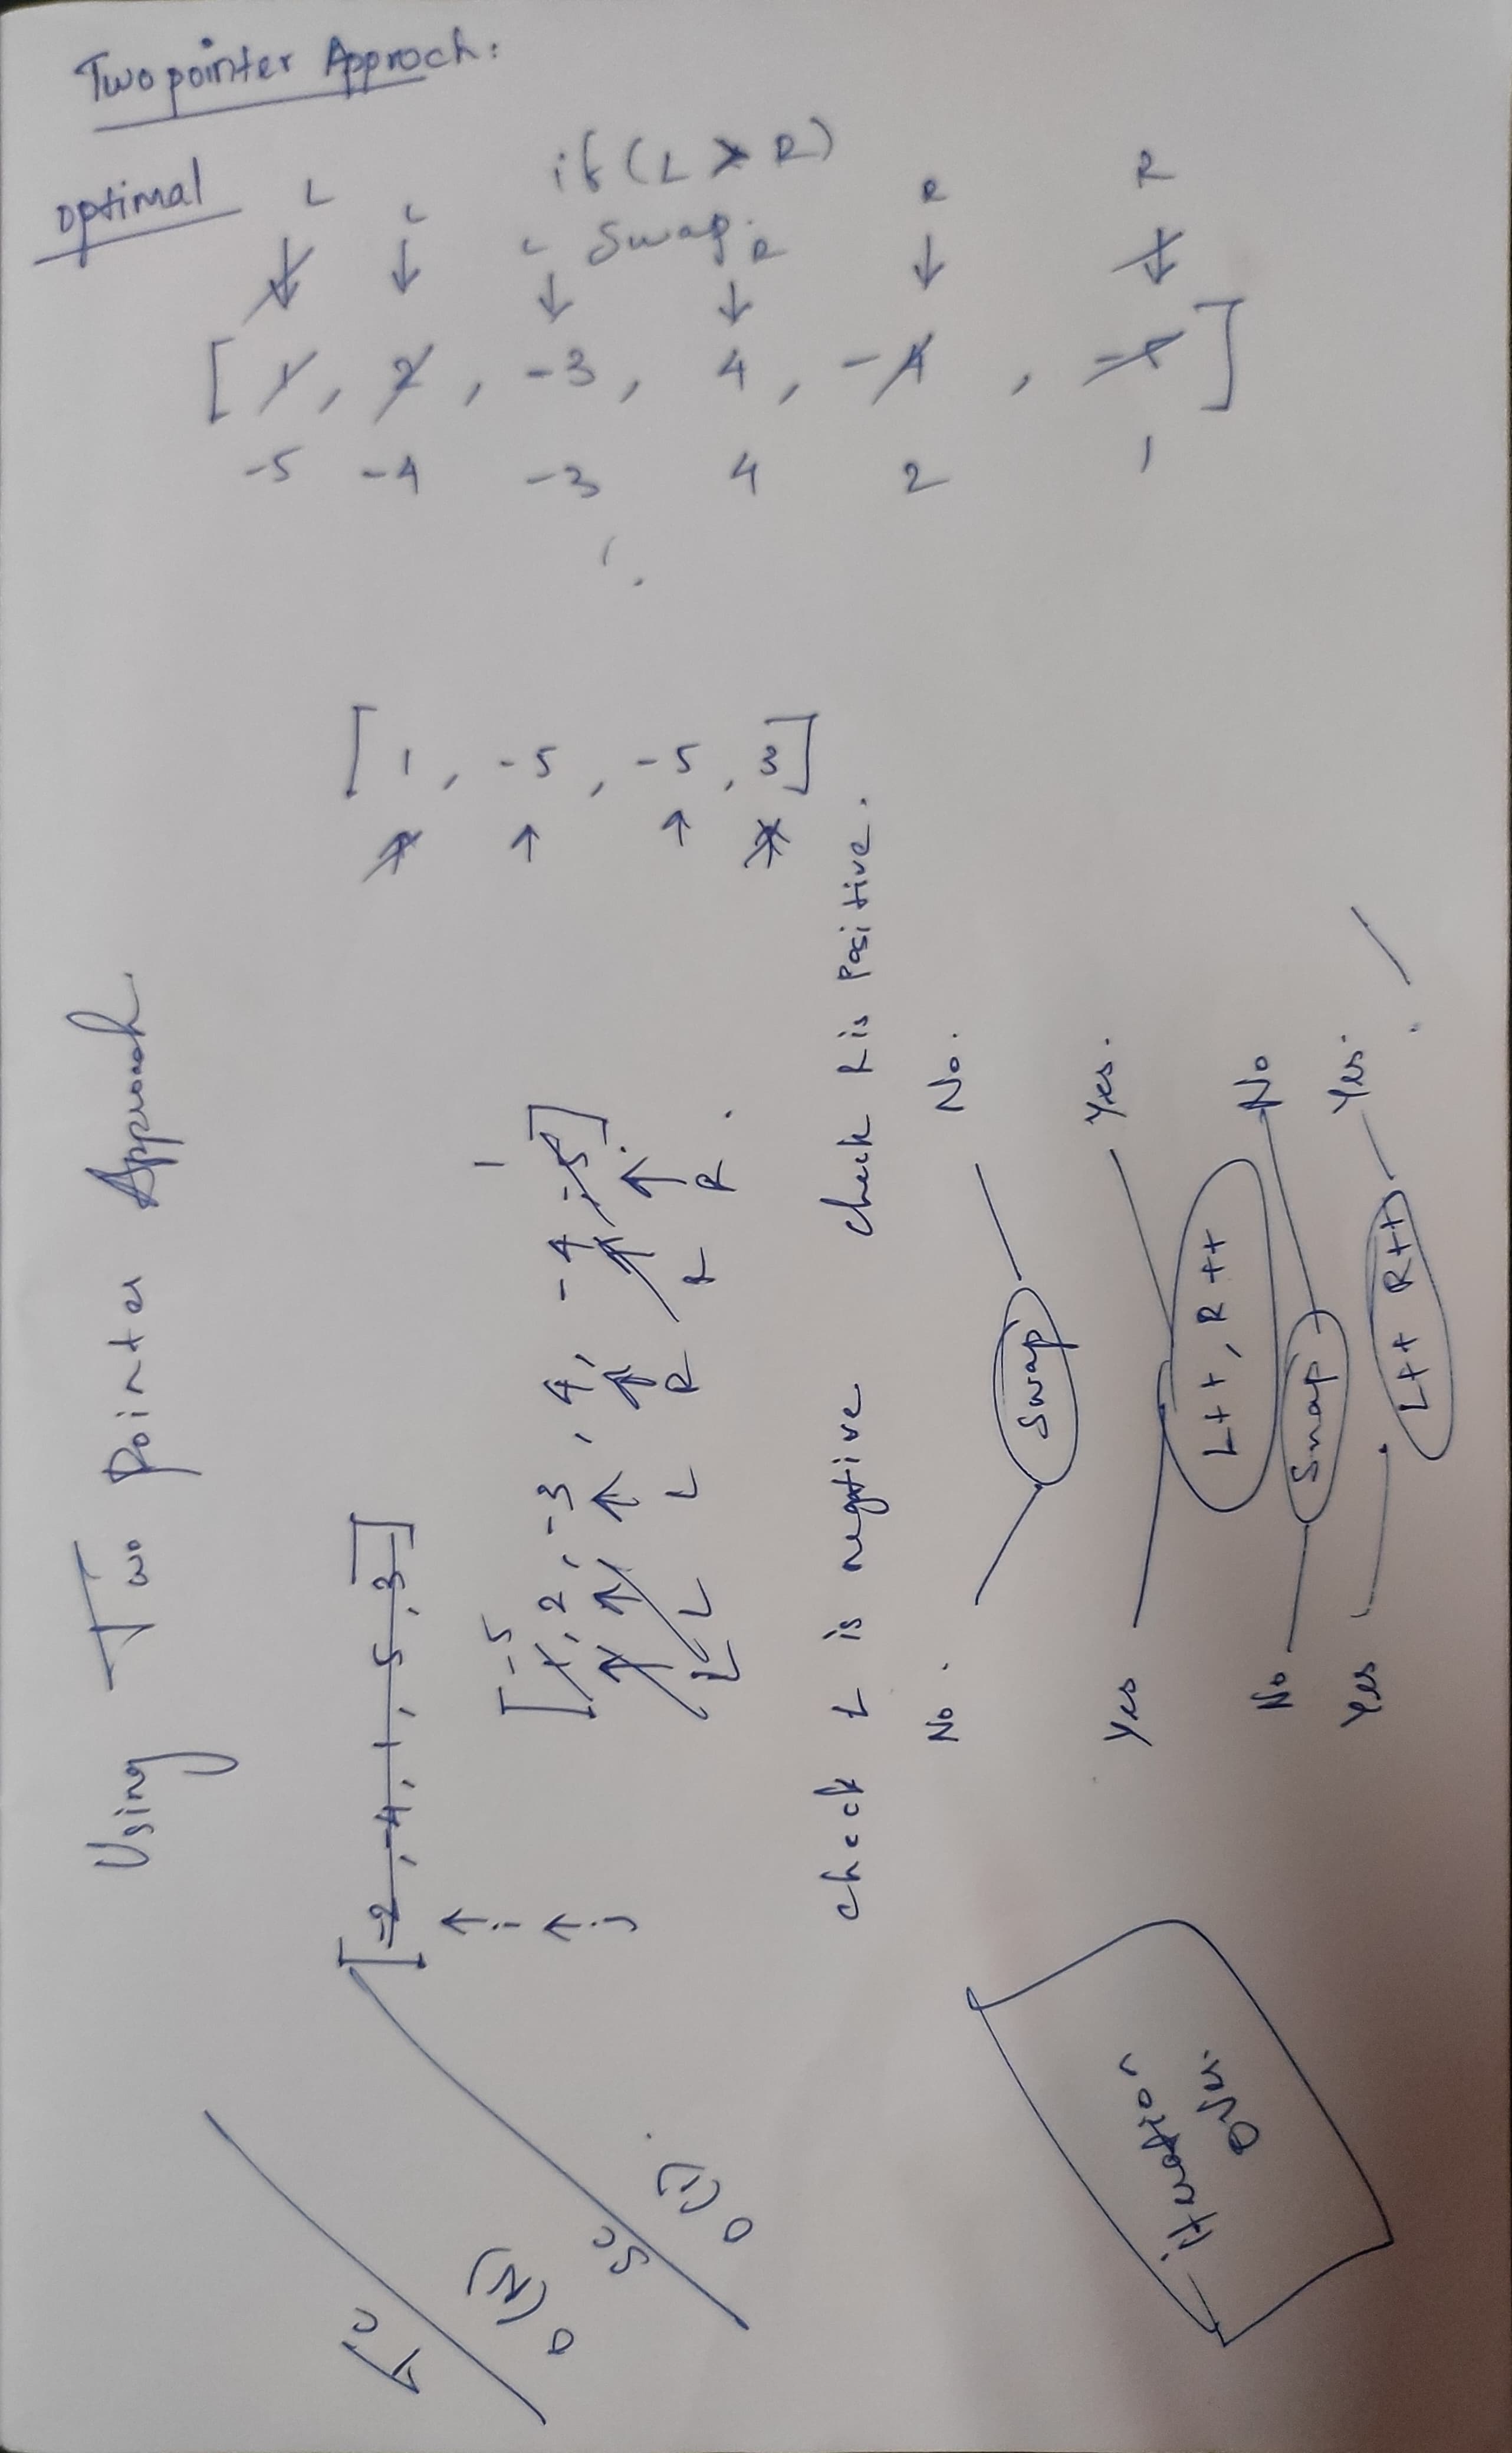 Two pointer Approch:
optimal
if (L > R)
Swap.
L L L R R R
[1, 2, -3, 4, -4, -5]
-5 -4 -3 4 2 1
[1, -5, -5, 3]
Using Two Pointer Approach
[-2, -4, 1, 5, 3]
i
j
-5 1
[1, 2, -3, 4, -4, -5]
L L L R R R
check L is negative check R is Positive.
No. Swap No.
Yes L++, R++ Yes.
No Swap No
Yes L++ R++ Yes.
TC
O(N)
SC
O(1)
iteration
over.